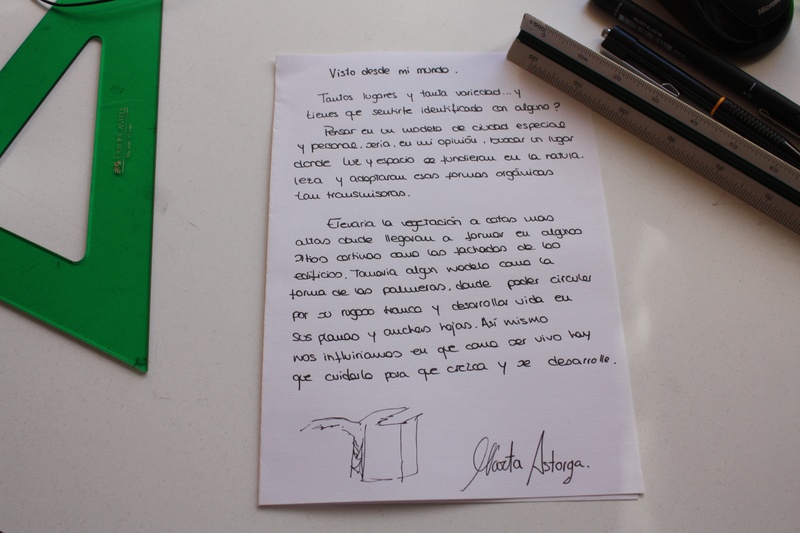 Visto desde mi mundo.
Tantos lugares y tanta variedad... y
tienes que sentirte identificado con alguno?
Pensar en un modelo de ciudad especial
y personal, seria, en mi opinión, buscar un lugar
donde luz y espacio se fundieran en la natura-
leza y adoptaran esas formas orgánicas
tan transmisoras.
Elevaria la vegetación a cotas mas
altas donde llegaran a formar en algunos
sitios cortinas como las fachadas de los
edificios. Tomaria algun modelo como la
forma de las palmeras, donde poder circular
por su rugoso tronco y desarrollar vida en
sus planas y anchas hojas. Así mismo
nos influiriamos en que como ser vivo hay
que cuidarlo para que crezca y se desarrolle.
Marta Astorga.